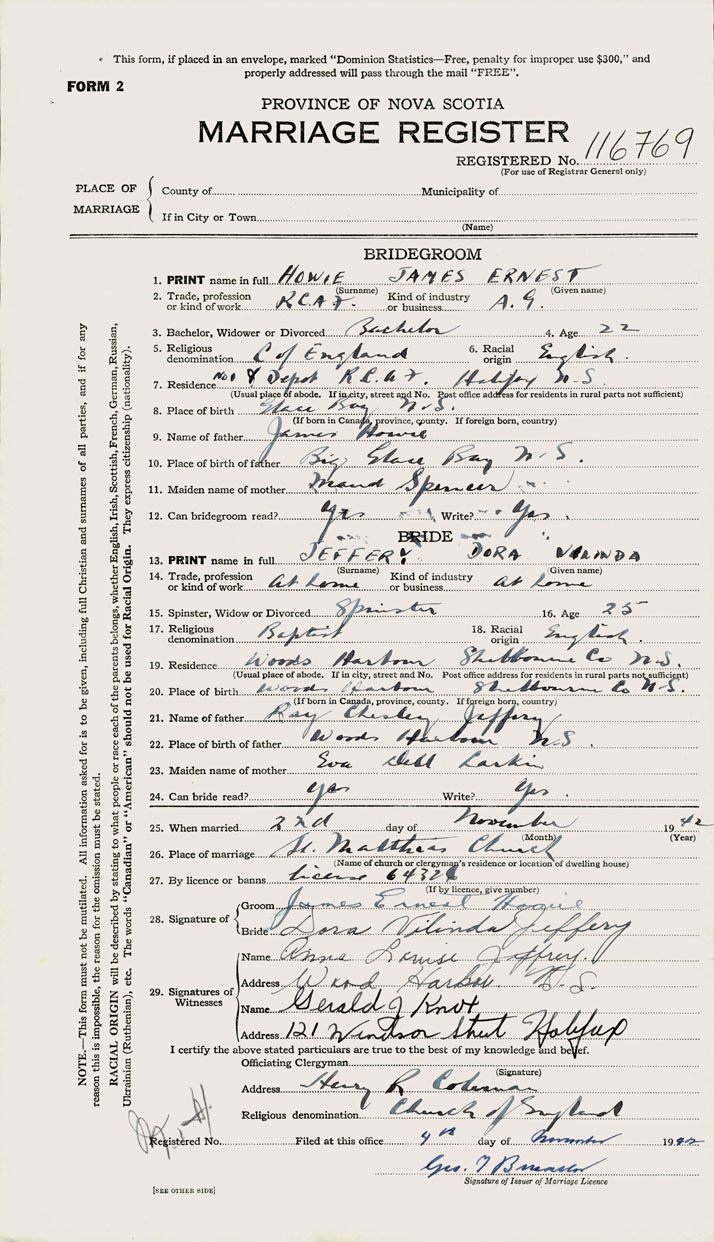 This form, if placed in an envelope, marked "Dominion Statistics—Free, penalty for improper use $300," and
properly addressed will pass through the mail "FREE".
FORM 2
PROVINCE OF NOVA SCOTIA
MARRIAGE REGISTER
REGISTERED No. 116769
(For use of Registrar General only)
PLACE OF MARRIAGE
County of Municipality of
If in City or Town
(Name)
BRIDEGROOM
1. PRINT name in full HOWIE JAMES ERNEST
(Surname) (Given name)
2. Trade, profession or kind of work R.C.A.F. Kind of industry or business A.G.
3. Bachelor, Widower or Divorced Bachelor 4. Age 22
5. Religious denomination C of England 6. Racial origin English.
7. Residence No. Y Depot R.C.A.F. Halifax N.S.
(Usual place of abode. If in city, street and No. Post office address for residents in rural parts not sufficient)
8. Place of birth Glace Bay N.S.
(If born in Canada, province, county. If foreign born, country)
9. Name of father James Howie
10. Place of birth of father Big Glace Bay N.S.
11. Maiden name of mother Maud Spencer
12. Can bridegroom read? Yes Write? Yes.
BRIDE
13. PRINT name in full JEFFERY DORA VILINDA
(Surname) (Given name)
14. Trade, profession or kind of work At home Kind of industry or business At home
15. Spinster, Widow or Divorced Spinster 16. Age 25
17. Religious denomination Baptist 18. Racial origin English.
19. Residence Woods Harbour Shelbourne Co N.S.
(Usual place of abode. If in city, street and No. Post office address for residents in rural parts not sufficient)
20. Place of birth Woods Harbour Shelbourne Co N.S.
(If born in Canada, province, county. If foreign born, country)
21. Name of father Ray Chesley Jeffery
22. Place of birth of father Woods Harbour N.S.
23. Maiden name of mother Eva Dell Larkin
24. Can bride read? Yes Write? Yes.
25. When married 22d day of November 1942
(Month) (Year)
26. Place of marriage St. Matthias Church
(Name of church or clergyman's residence or location of dwelling house)
27. By licence or banns license 64326
(If by licence, give number)
28. Signature of
Groom James Ernest Howie
Bride Dora Vilinda Jeffery
29. Signatures of Witnesses
Name Anna Louise Jeffrey.
Address Wood Harbor N.S.
Name Gerald J Knox
Address 121 Windsor Street Halifax
I certify the above stated particulars are true to the best of my knowledge and belief.
Officiating Clergyman
(Signature)
Address Henry R Coleman
Religious denomination Church of England
Registered No. Filed at this office 4th day of November 1942
Geo. T
Signature of Issuer of Marriage Licence
[SEE OTHER SIDE]
NOTE.—This form must not be mutilated. All information asked for is to be given, including full Christian and surnames of all parties, and if for any
reason this is impossible, the reason for the omission must be stated.
RACIAL ORIGIN will be described by stating to what people or race each of the parents belongs, whether English, Irish, Scottish, French, German, Russian,
Ukrainian (Ruthenian), etc. The words "Canadian" or "American" should not be used for Racial Origin. They express citizenship (nationality).